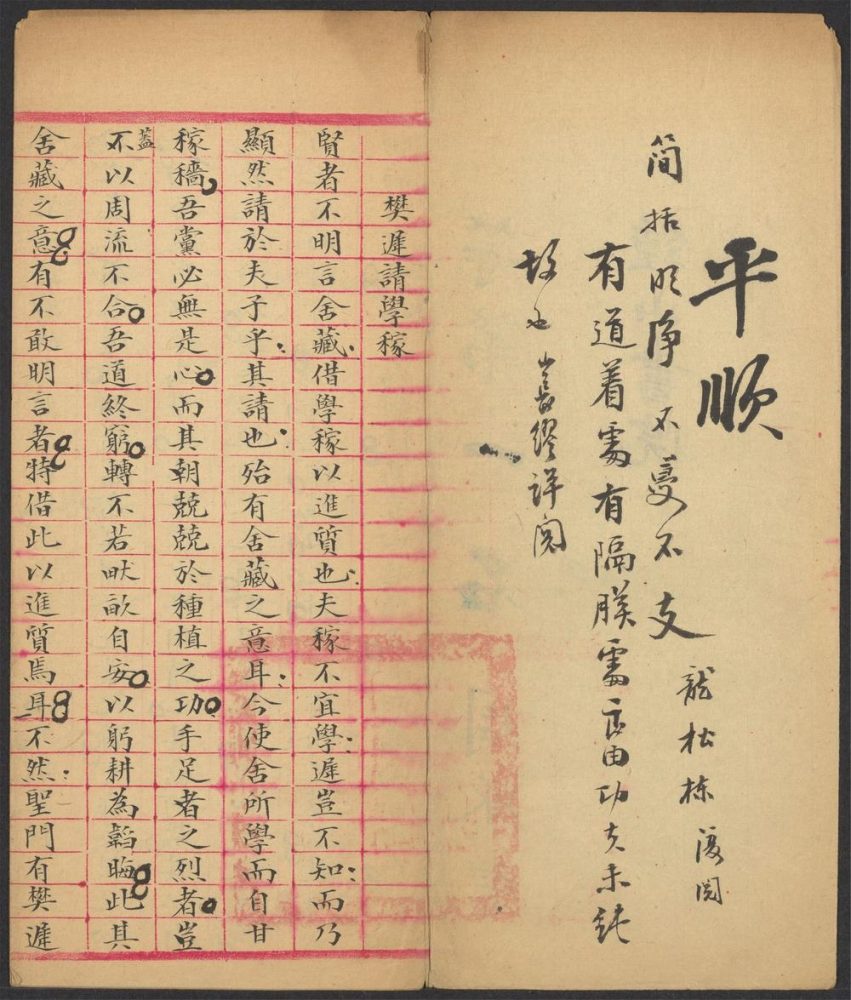 平順
簡括明淨 不蔓不支 龍松棟復閱
有道着處有隔膜處良由功夫未純
故也 繆詳閱
樊遲請學稼
賢者不明言舍藏借學稼以進質也夫稼不宜學遲豈不知而乃
顯然請於夫子乎其請也殆有舍藏之意耳今使舍所學而自甘
稼穡吾黨必無是心而其朝兢兢於種植之功手足者之烈者豈
蓋不以周流不合吾道終窮轉不若畎畝自安以躬耕為韜晦此其
舍藏之意有不敢明言者特借此以進質焉耳不然聖門有樊遲